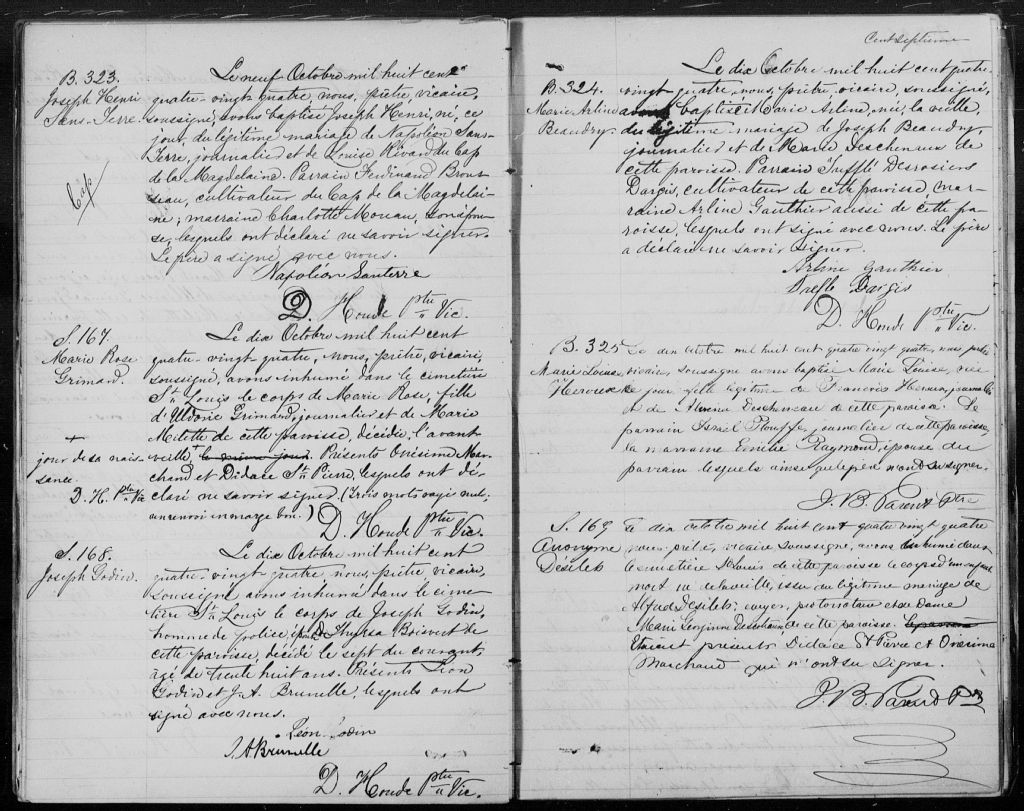 B. 323.
Joseph Henri
Sans-Terre.
Cap
Le neuf Octobre mil huit cent
quatre-vingt quatre, nous, prêtre, vicaire,
soussigné, avons baptisé Joseph Henri, né, ce
jour, du légitime mariage de Napoléon Sans-
Terre, journalier et de Louise Rivard du Cap
de la Magdelaine. Parrain Ferdinand Brous-
seau, cultivateur du Cap de la Magdelai-
ne; marraine Charlotte Moreau, son épou-
se, lesquels ont déclaré ne savoir signer.
Le père a signé avec nous.
Napoléon Santerre
D. Houde Ptre Vic.
S. 167.
Marie Rose
Grimard.
+
jour de sa nais-
sance
D. H. Ptre Vic
Le dix Octobre mil huit cent
quatre-vingt quatre, nous, prêtre, vicaire,
soussigné, avons inhumé dans le cimetière
St Louis le corps de Marie Rose, fille
d'Uldoric Grimard, journalier et de Marie
Milette de cette paroisse, décédée, l'avant-
veille, + le même jour. Présents Onisime Mar-
chand et Didace St Pierre, lesquels ont dé-
claré ne savoir signer. (Trois mots rayés nuls,
un renvoi en marge bon.)
D. Houde Ptre Vic.
S. 168.
Joseph Godin.
Le dix Octobre mil huit cent
quatre-vingt quatre, nous, prêtre, vicaire,
soussigné avons inhumé dans le cime-
tière St Louis le corps de Joseph Godin,
homme de police, époux D. Thirsa Boisvert de
cette paroisse, décédé le sept du courant,
âgé de trente huit ans. Présents Léon
Godin et J. A. Brunelle, lesquels ont
signé avec nous.
Léon Godin
J. A Brunelle
D. Houde Ptre Vic.
Cent septième
B. 324.
Marie Arline
Beaudry.
Le dix Octobre mil huit cent quatre-
vingt quatre, nous, prêtre, vicaire, soussigné,
avons baptisé Marie Arline, née, la veille,
du légitime mariage de Joseph Beaudry,
journalier et de Marie Deschenaux de
cette paroisse. Parrain Trefflé Desrosiers
Dargis, cultivateur de cette paroisse, mar-
raine Arline Gauthier aussi de cette pa-
roisse, lesquels ont signé avec nous. Le père
a déclaré ne savoir signer.
Arline Gauthier
Trefle Dargis
D. Houde Ptre Vic.
B. 325
Marie Louise
Heroux
Le dix octobre mil huit cent quatre vingt quatre, nous prêtre
vicaire, soussigné avons baptisé Marie Louise, née
ce jour, fille légitime de François Heroux, journalier
et de Deschenaux de cette paroisse. Le
parrain Israel Plouffe, journalier de cette paroisse,
la marraine Emilie Raymond, épouse du
parrain lesquels ainsi que le père n'ont su signer.
J. B. Parent Ptre
S. 169
Anonyme
Désilets
Le dix octobre mil huit cent quatre vingt quatre
nous prêtre, vicaire soussigné, avons inhumé dans
le cimetière St Louis de cette paroisse le corps d'un enfant
mort né de la veille, issu du légitime mariage de
Alfred Desilets, écuyer, protonotaire et de Dame
Marie Georginne de cette paroisse.
Etaient présents Didace St Pierre et Onesime
Marchand qui n'ont su signer.
J. B. Parent Ptre